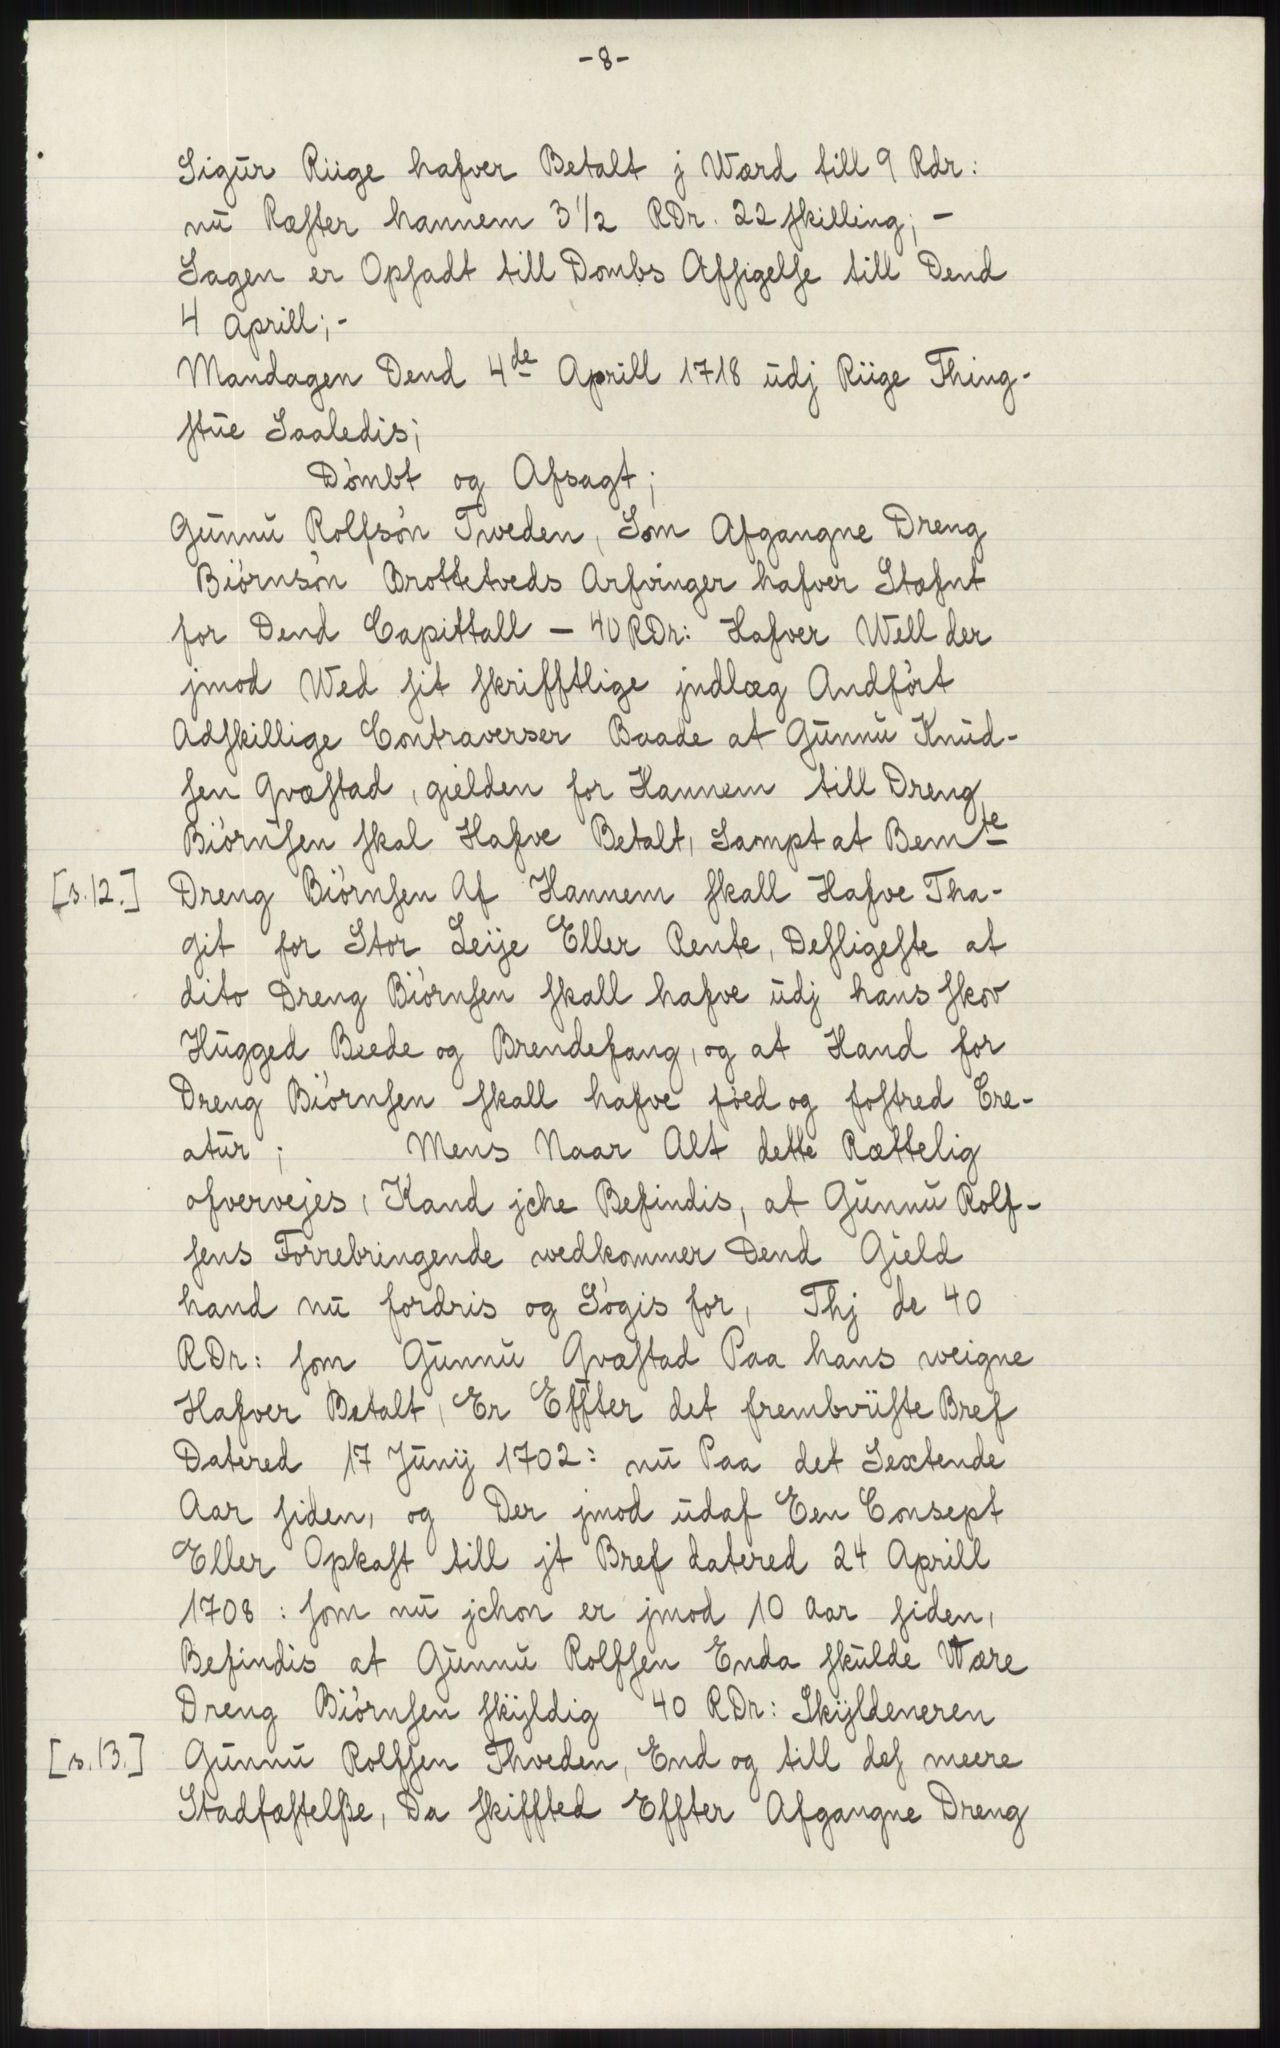 -8-
Sigur Riige hafver Betalt j Wærd till 9 Rdr:
nu Ræster hannem 3 1/2 RDr. 22 skilling; -
Sagen er Opsadt till Dombs Afsigelse till Dend
4 Aprill; -
Mandagen Dend 4de Aprill 1718 udj Riige Thing-
stue Saaledis;
Dömbt og Afsagt;
Gunnu Rolfsön Tweden, Som Afgangne Dreng
Biörnsön Brottetveds Arfvinger hafver Stæfnt
for Dend Capittall - 40 RDr: Hafver Well der
jmod Wed sit skrifftlige jndlæg Andfört
Adskillige Contraverser Baade at Gunnu Knud-
sen Qvæstad, gielden for Hannem till Dreng
Biörnsen skal Hafve Betalt, Sampt at Bemte
[s.12.] Dreng Biörnsen Af Hannem skall Hafve Tha-
git for Stor Leije Eller Rente, Desligeste at
dito Dreng Biörnsen skall hafve udj hans skov
Hugged Beede og Brendefang, og at Hand for
Dreng Biörnsen skall hafve föed og fostred Cre-
atur; Mens Naar Alt dette Rættelig
ofvervejes, Kand jche Befindis, at Gunnu Rolf-
sens Forrebringende wedkommer Dend Gield
hand nu fordris og Sögis for, Thj de 40
RDr: som Gunnu Qvæstad Paa hans weigne
Hafver Betalt, Er Effter det frembviiste Bref
Datered 17 Junij 1702: nu Paa det Sextende
Aar siden, og Der jmod udaf Een Consept
Eller Opkast till jt Bref datered 24 Aprill
1708: som nu jchon er jmod 10 Aar siden,
Befindis at Gunnu Rolfsen Enda skulde Være
Dreng Biörnsen skyldig 40 RDr: Skyldeneren
[s.13.] Gunnu Rolfsen Thveden, End og till des meere
Stadfæstelße, Da skiffted Effter Afgangne Dreng